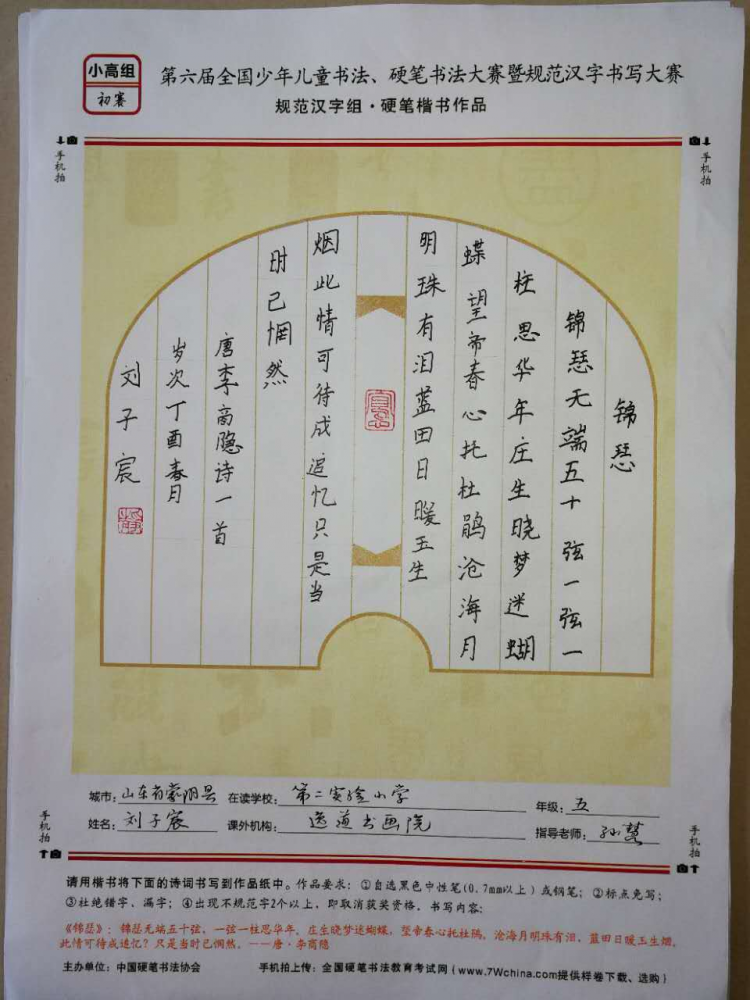 小高组
初赛
第六届全国少年儿童书法、硬笔书法大赛暨规范汉字书写大赛
规范汉字组·硬笔楷书作品
手机拍
手机拍
锦瑟
锦瑟无端五十弦一弦一
柱思华年庄生晓梦迷蝴
蝶望帝春心托杜鹃沧海月
明珠有泪蓝田日暖玉生
烟此情可待成追忆只是当
时已惘然
唐李商隐诗一首
岁次丁酉春月
刘子宸
城市：山东省蒙阴县 在读学校：第二实验小学 年级：五
姓名：刘子宸 课外机构：逸道书画院 指导老师：孙慧
手机拍
手机拍
请用楷书将下面的诗词书写到作品纸中。作品要求：①自选黑色中性笔(0.7mm以上)或钢笔；②标点免写；
③杜绝错字、漏字；④出现不规范字2个以上，即取消获奖资格。书写内容：
《锦瑟》：锦瑟无端五十弦，一弦一柱思华年。庄生晓梦迷蝴蝶，望帝春心托杜鹃。沧海月明珠有泪，蓝田日暖玉生烟。
此情可待成追忆？只是当时已惘然。——唐·李商隐
主办单位：中国硬笔书法协会 手机拍上传：全国硬笔书法教育考试网(www.7Wchina.com提供样卷下载、选购)